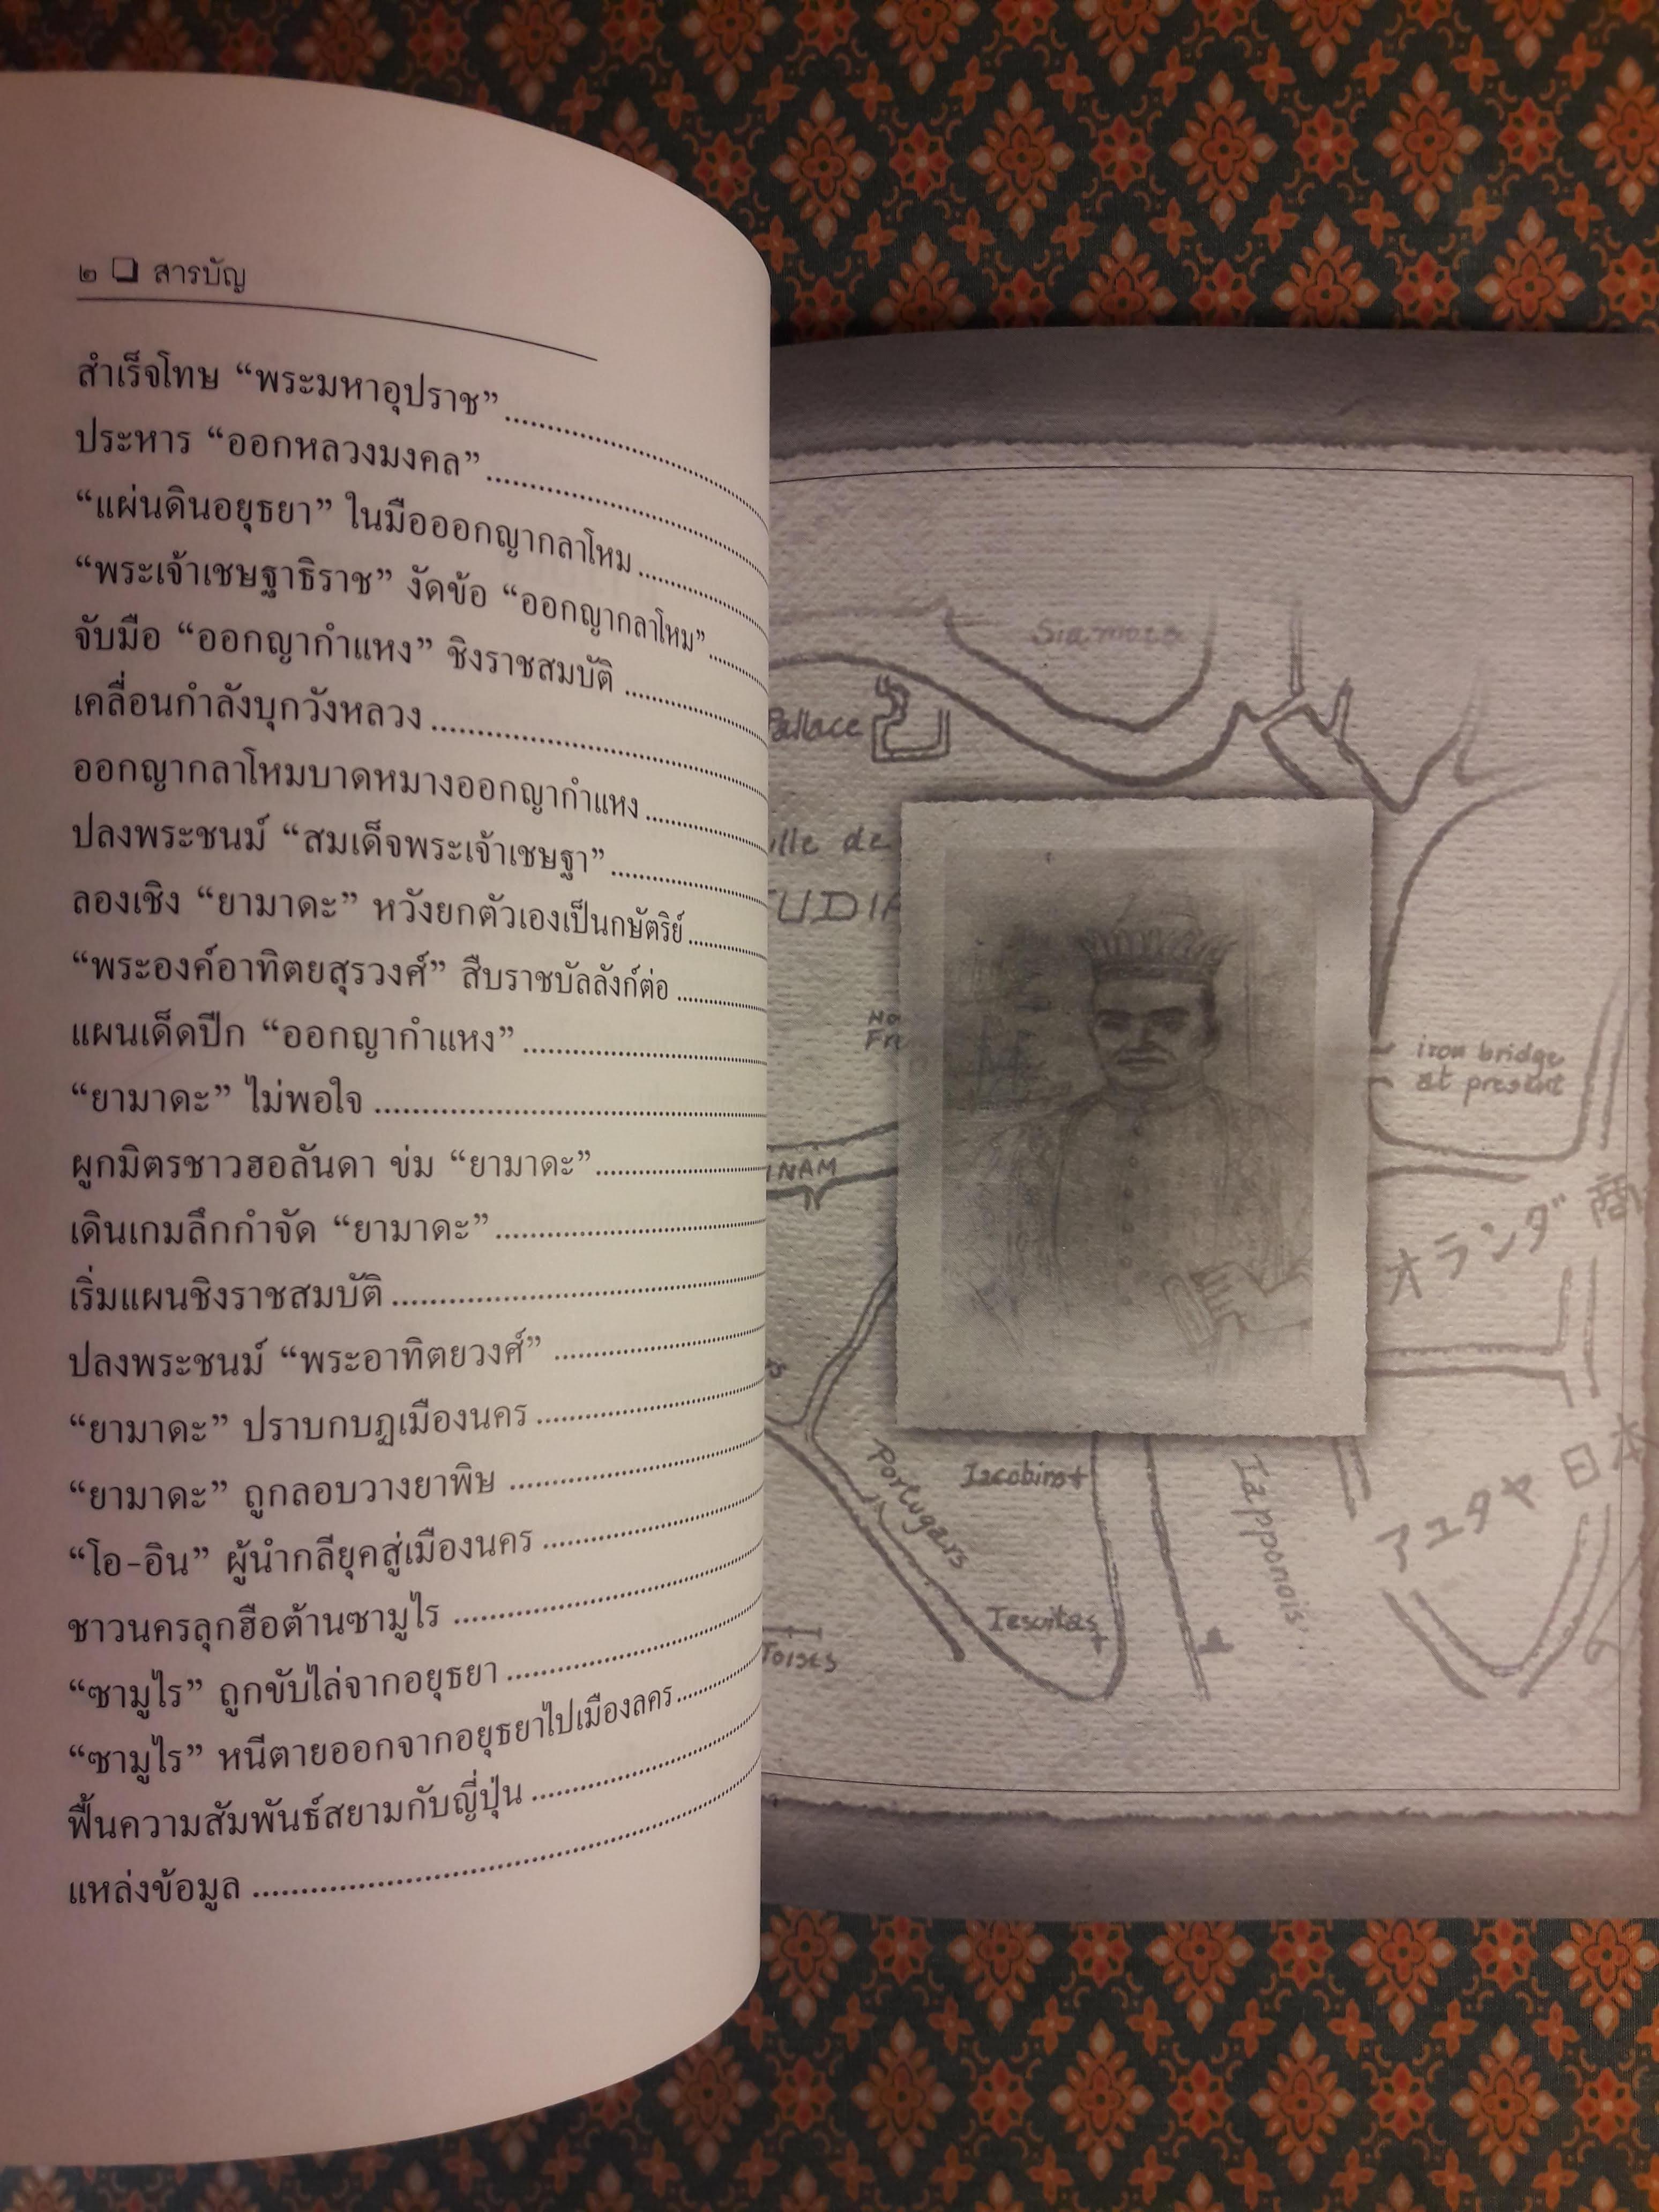 ๒ ❑ สารบัญ
สำเร็จโทษ “พระมหาอุปราช”
ประหาร “ออกหลวงมงคล”
“แผ่นดินอยุธยา” ในมือออกญากลาโหม
“พระเจ้าเชษฐาธิราช” งัดข้อ “ออกญากลาโหม”
จับมือ “ออกญากำแหง” ชิงราชสมบัติ
เคลื่อนกำลังบุกวังหลวง
ออกญากลาโหมบาดหมางออกญากำแหง
ปลงพระชนม์ “สมเด็จพระเจ้าเชษฐา”
ลองเชิง “ยามาดะ” หวังยกตัวเองเป็นกษัตริย์
“พระองค์อาทิตยสุรวงศ์” สืบราชบัลลังก์ต่อ
แผนเด็ดปีก “ออกญากำแหง”
“ยามาดะ” ไม่พอใจ
ผูกมิตรชาวฮอลันดา ข่ม “ยามาดะ”
เดินเกมลึกกำจัด “ยามาดะ”
เริ่มแผนชิงราชสมบัติ
ปลงพระชนม์ “พระอาทิตยวงศ์”
“ยามาดะ” ปราบกบฏเมืองนคร
“ยามาดะ” ถูกลอบวางยาพิษ
“โอ-อิน” ผู้นำกลียุคสู่เมืองนคร
ชาวนครลุกฮือต้านซามูไร
“ซามูไร” ถูกขับไล่จากอยุธยา
“ซามูไร” หนีตายออกจากอยุธยาไปเมืองลคร
ฟื้นความสัมพันธ์สยามกับญี่ปุ่น
แหล่งข้อมูล
Pallace
de
iron bridge
at present
オランダ 商
Portugais
Iacobins
Iapponois
アユタヤ 日本
Toises